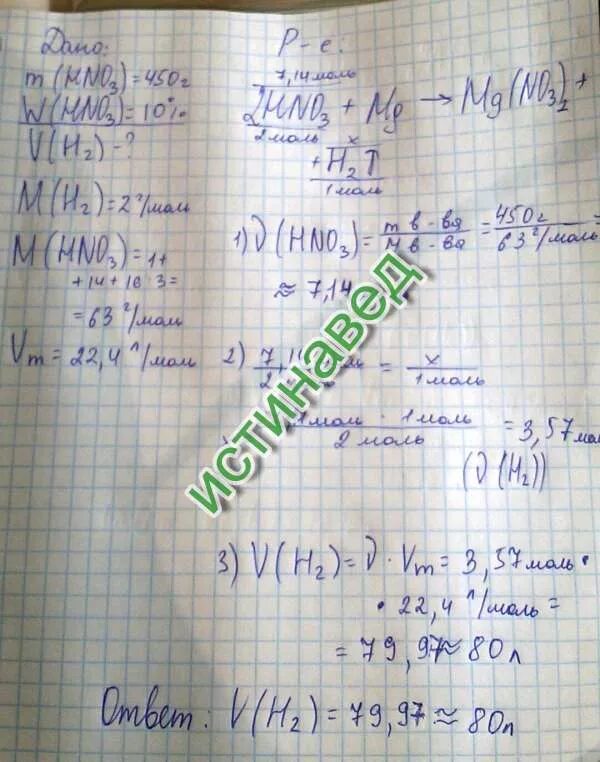 Дано:
m(HNO₃)=450г
W(HNO₃)=10%
V(H₂)-?
M(H₂)=2 г/моль
M(HNO₃)=1+
+14+16·3=
=63 г/моль
Vm=22,4 л/моль
Р-е:
7,14моль
2HNO₃ + Mg → Mg(NO₃)₂ +
2моль x
+H₂↑
1моль
1) ν(HNO₃)= m в-ва / M в-ва = 450г / 63 г/моль =
≈ 7,14
2) 7,1 / 2 = x / 1моль
1моль · 1моль / 2 моль = 3,57моль
(ν(H₂))
3) V(H₂)=ν·Vm=3,57моль·
·22,4 л/моль=
=79,97≈80л
Ответ: V(H₂)=79,97≈80л
ИСТИНАВЕД